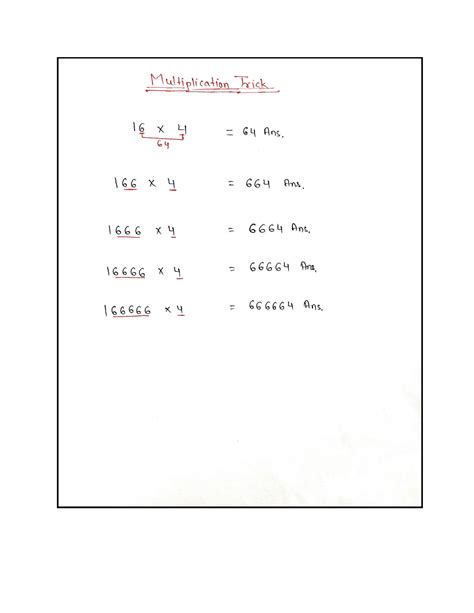 Multiplication Trick
16 x 4 = 64 Ans.
64
166 x 4 = 664 Ans.
1666 x 4 = 6664 Ans.
16666 x 4 = 66664 Ans.
166666 x 4 = 666664 Ans.